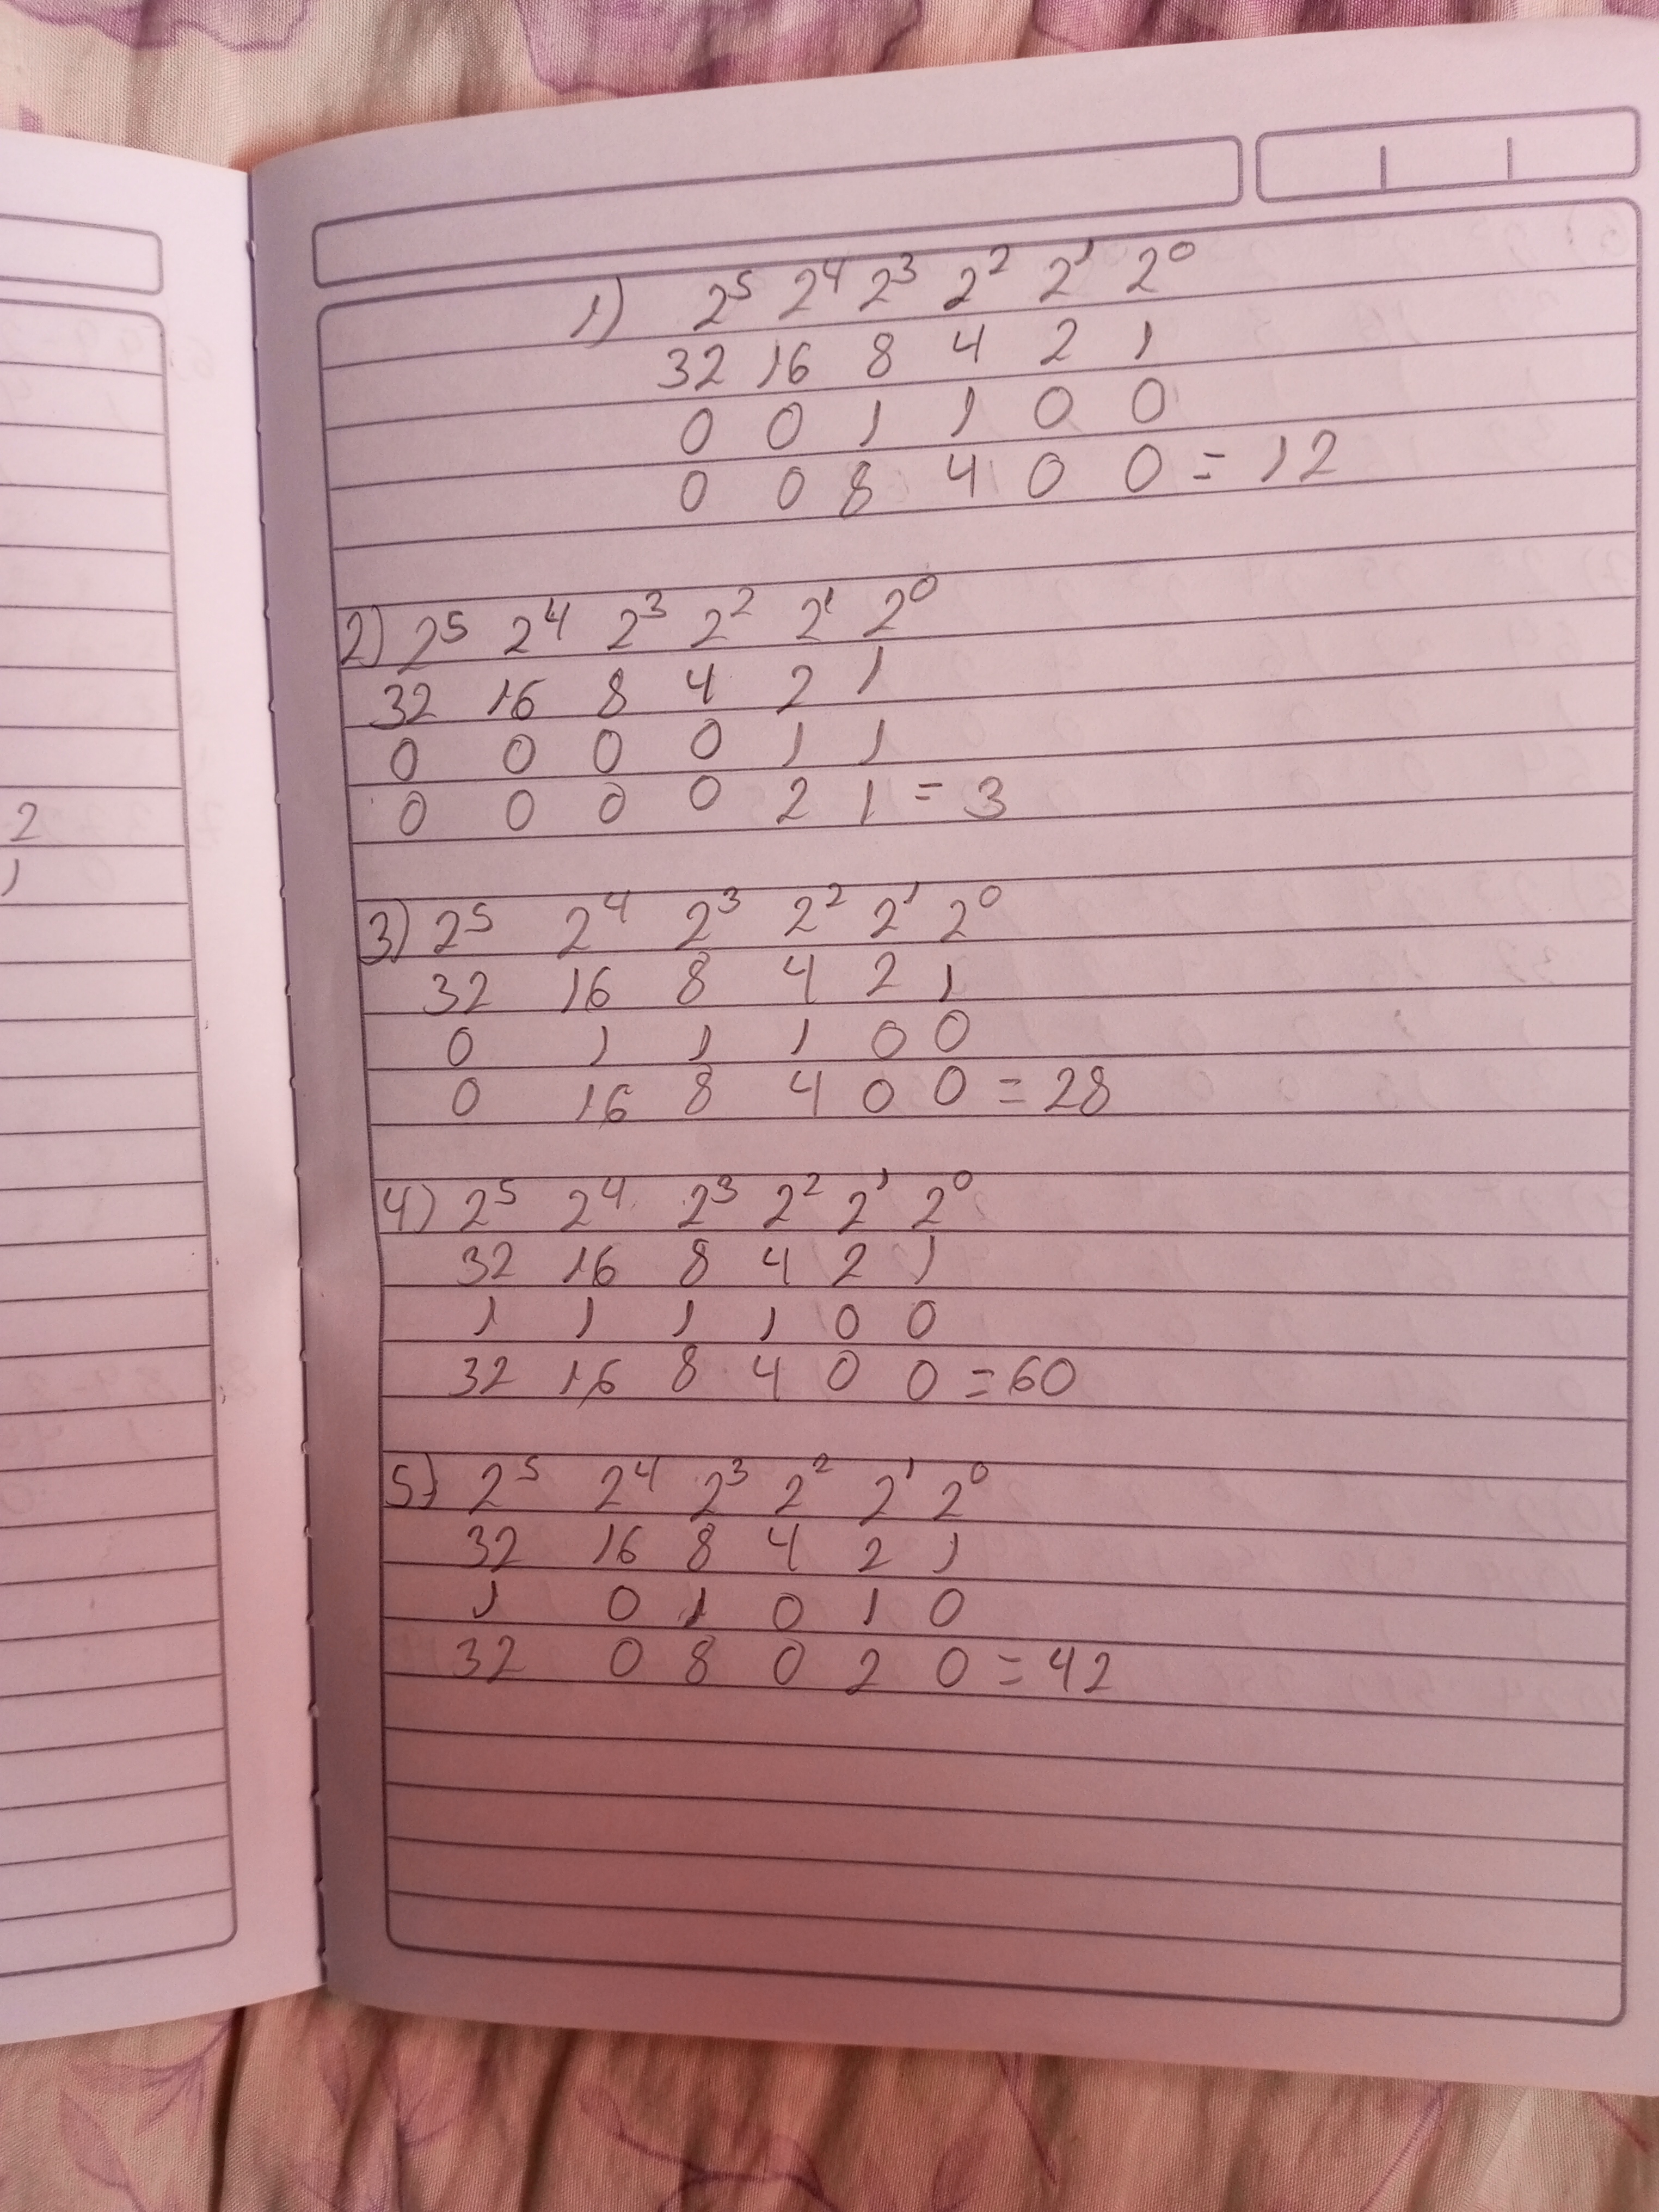 2
1
1) 2⁵ 2⁴ 2³ 2² 2¹ 2⁰
32 16 8 4 2 1
0 0 1 1 0 0
0 0 8 4 0 0 = 12
2) 2⁵ 2⁴ 2³ 2² 2¹ 2⁰
32 16 8 4 2 1
0 0 0 0 1 1
0 0 0 0 2 1 = 3
3) 2⁵ 2⁴ 2³ 2² 2¹ 2⁰
32 16 8 4 2 1
0 1 1 1 0 0
0 16 8 4 0 0 = 28
4) 2⁵ 2⁴ 2³ 2² 2¹ 2⁰
32 16 8 4 2 1
1 1 1 1 0 0
32 16 8 4 0 0 = 60
5) 2⁵ 2⁴ 2³ 2² 2¹ 2⁰
32 16 8 4 2 1
1 0 1 0 1 0
32 0 8 0 2 0 = 42